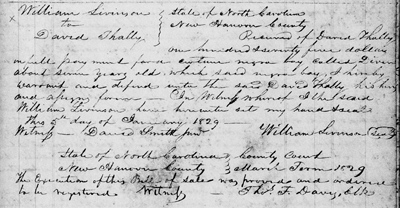 William Levinson } State of North Carolina
to } New Hanover County
David Thally } Received of David Thally
one hundred seventy five dollars
in full payment for a certain negro boy called
about seven years old which said negro boy, I hereby
warrant and defend unto the said David Thally his heirs
and assigns forever In Witness whereof I the said
William Levinson have hereunto set my hand & seal
This 5th day of January 1829
Witness — David Smith Jur William Levinson (Seal)
State of North Carolina } County Court
New Hanover County } March Term 1829
The Execution of this Bill of sale was proved and ordered
to be registered Witness Thos. F. Davis, Clk